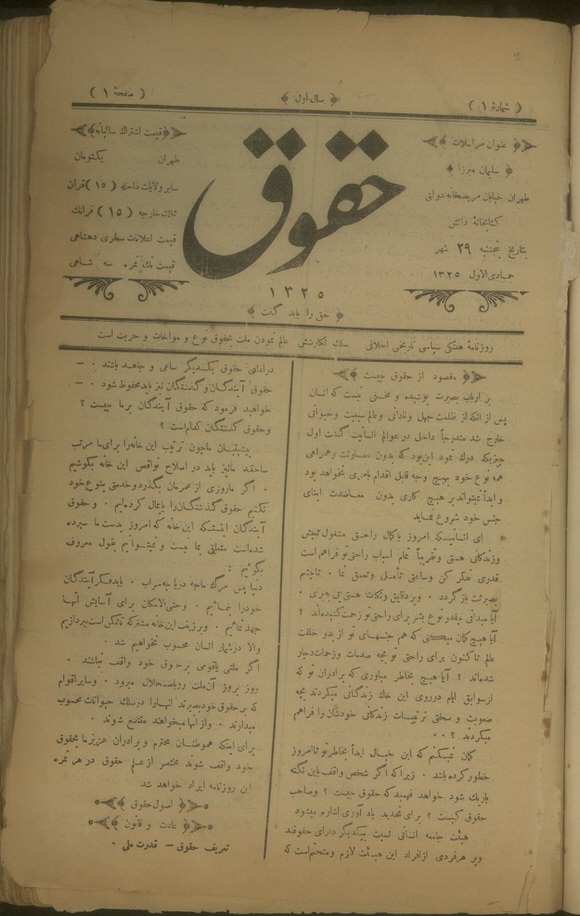 ( شمارهٔ ۱ )
سال اول
( صفحهٔ ۱ )
عنوان مراسلات
سلیمان میرزا
طهران خیابان مریضخانه دولتی
کتابخانهٔ دانش
بتاریخ پنجشنبه ۲۹ شهر
جمادی‌الاول ۱۳۲۵
حقوق
۱۳۲۵
حق را باید گفت
قیمت اشتراک سالیانه
طهران یکتومان
سایر ولایات داخله (۱۵) قران
ممالک خارجه (۱۵) فرانک
قیمت اعلانات سطری دهشاهی
قیمت تک نمره سه شاهی
روزنامهٔ هفتگی سیاسی تاریخی اخلاقی مسلک نگارشش عالم نمودن ملت بحقوق نوع و مواخات و حریت است
مقصود از حقوق چیست
بر ارباب بصیرت پوشیده و مخفی نیست که انسان
پس از آنکه از ظلمت جهل ونادانی وعالم سبعیت وحیوانی
خارج شد متدرجاً داخل در عوالم انسانیت گشت اول
چیزیکه درک نمود این بود که بدون معاونت وهمراهی
همه نوع خود بهیچ وجه قابل اقدام بامری نخواهد بود
و ابداً نمیتواند بر هیچ کاری بدون معاضدت ابنای
جنس خود شروع نماید
ای انسانیکه امروز باکمال راحتی مشغول تعیش
وزندگانی هستی وتقریباً تمام اسباب راحتی تو فراهم است
قدری فکر کن وساعتی تأمل وتعمق نما
بصیرتت باز گردد وبر دقایق ونکات هستی پی ببری
آیا میدانی چقدر نوع بشر برای راحتی تو زحمت کشیده‌اند ؟
آیا هیچ گمان میکنی که هم جنسهای تو از بدو خلقت
عالم تاکنون برای راحتی تو بچه صدمات وزحمات دچار
شده‌اند ؟ آیا هیچ بخاطر میآوری که برادران تو که
از سوابق ایام درروی این خاک زندگانی میکردند بچه
صعوبت و سختی ترتیبات زندگانی خودشان را فراهم
میکردند ؟
گمان نمیکنم که این خیال ابداً بخاطر تو تا امروز
خطور کرده باشد . زیرا که اگر شخص واقف باین نکته
باریک شود خواهد فهمید که حقوق چیست ؟ وصاحب
حقوق کیست ؟ برای تجدید یاد آوری اشاره میشود
هیئت جامعه انسانی نسبت بیکدیگر دارای حقوقند
وبر هر فردی از افراد این هیئت لازم ومتحتم است که
درادای حقوق یکدیگر ساعی و جاهد باشند . —
حقوق آیندگان وگذشتگان نیز باید محفوظ شود . —
خواهید فرمود که حقوق آیندگان بر ما چیست ؟
وحقوق گذشتگان کدام است ؟
پیشینیان ما چون ترتیب این خانه را برای ما مرتب
ساختند مانیز باید در اصلاح نواقص این خانه بکوشیم
. اگر ما روزی از عمرمان بگذرد وخدمتی بنوع خود
نکنیم حقوق گذشتگان را پایمال کرده‌ایم . وحقوق
آیندگان اینستکه این خانه که امروز بدست ما سپرده
شده است متعلق بما نیست و نمیتوانیم بقول معروف
بگوئیم :
دنیا پس مرگ ما چه دریا چه سراب . باید فکر آیندگان
خود را بنمائیم . وحتی‌الامکان برای آسایش آنها
جهد نمائیم . وبر زینت این خانه مشترکه تا ممکن است بپردازیم
والا در شمار انسان محسوب نخواهیم شد .
اگر ملتی یاقومی بر حقوق خود واقف نباشند .
روز بروز آن ملت رو باضمحلال میرود . وسایر اقوام
که بر حقوق خود بصیرند آنها را درسلک حیوانات محسوب
میدارند . واز آنها میخواهند متمتع شوند .
برای اینکه هموطنان محترم وبرادران عزیز ما بحقوق
خود واقف شوند مختصر از علم حقوق در هر نمره
این روزنامه ایراد خواهد شد
اصول حقوق
عادت و قانون
تعریف حقوق — قدرت ملی .